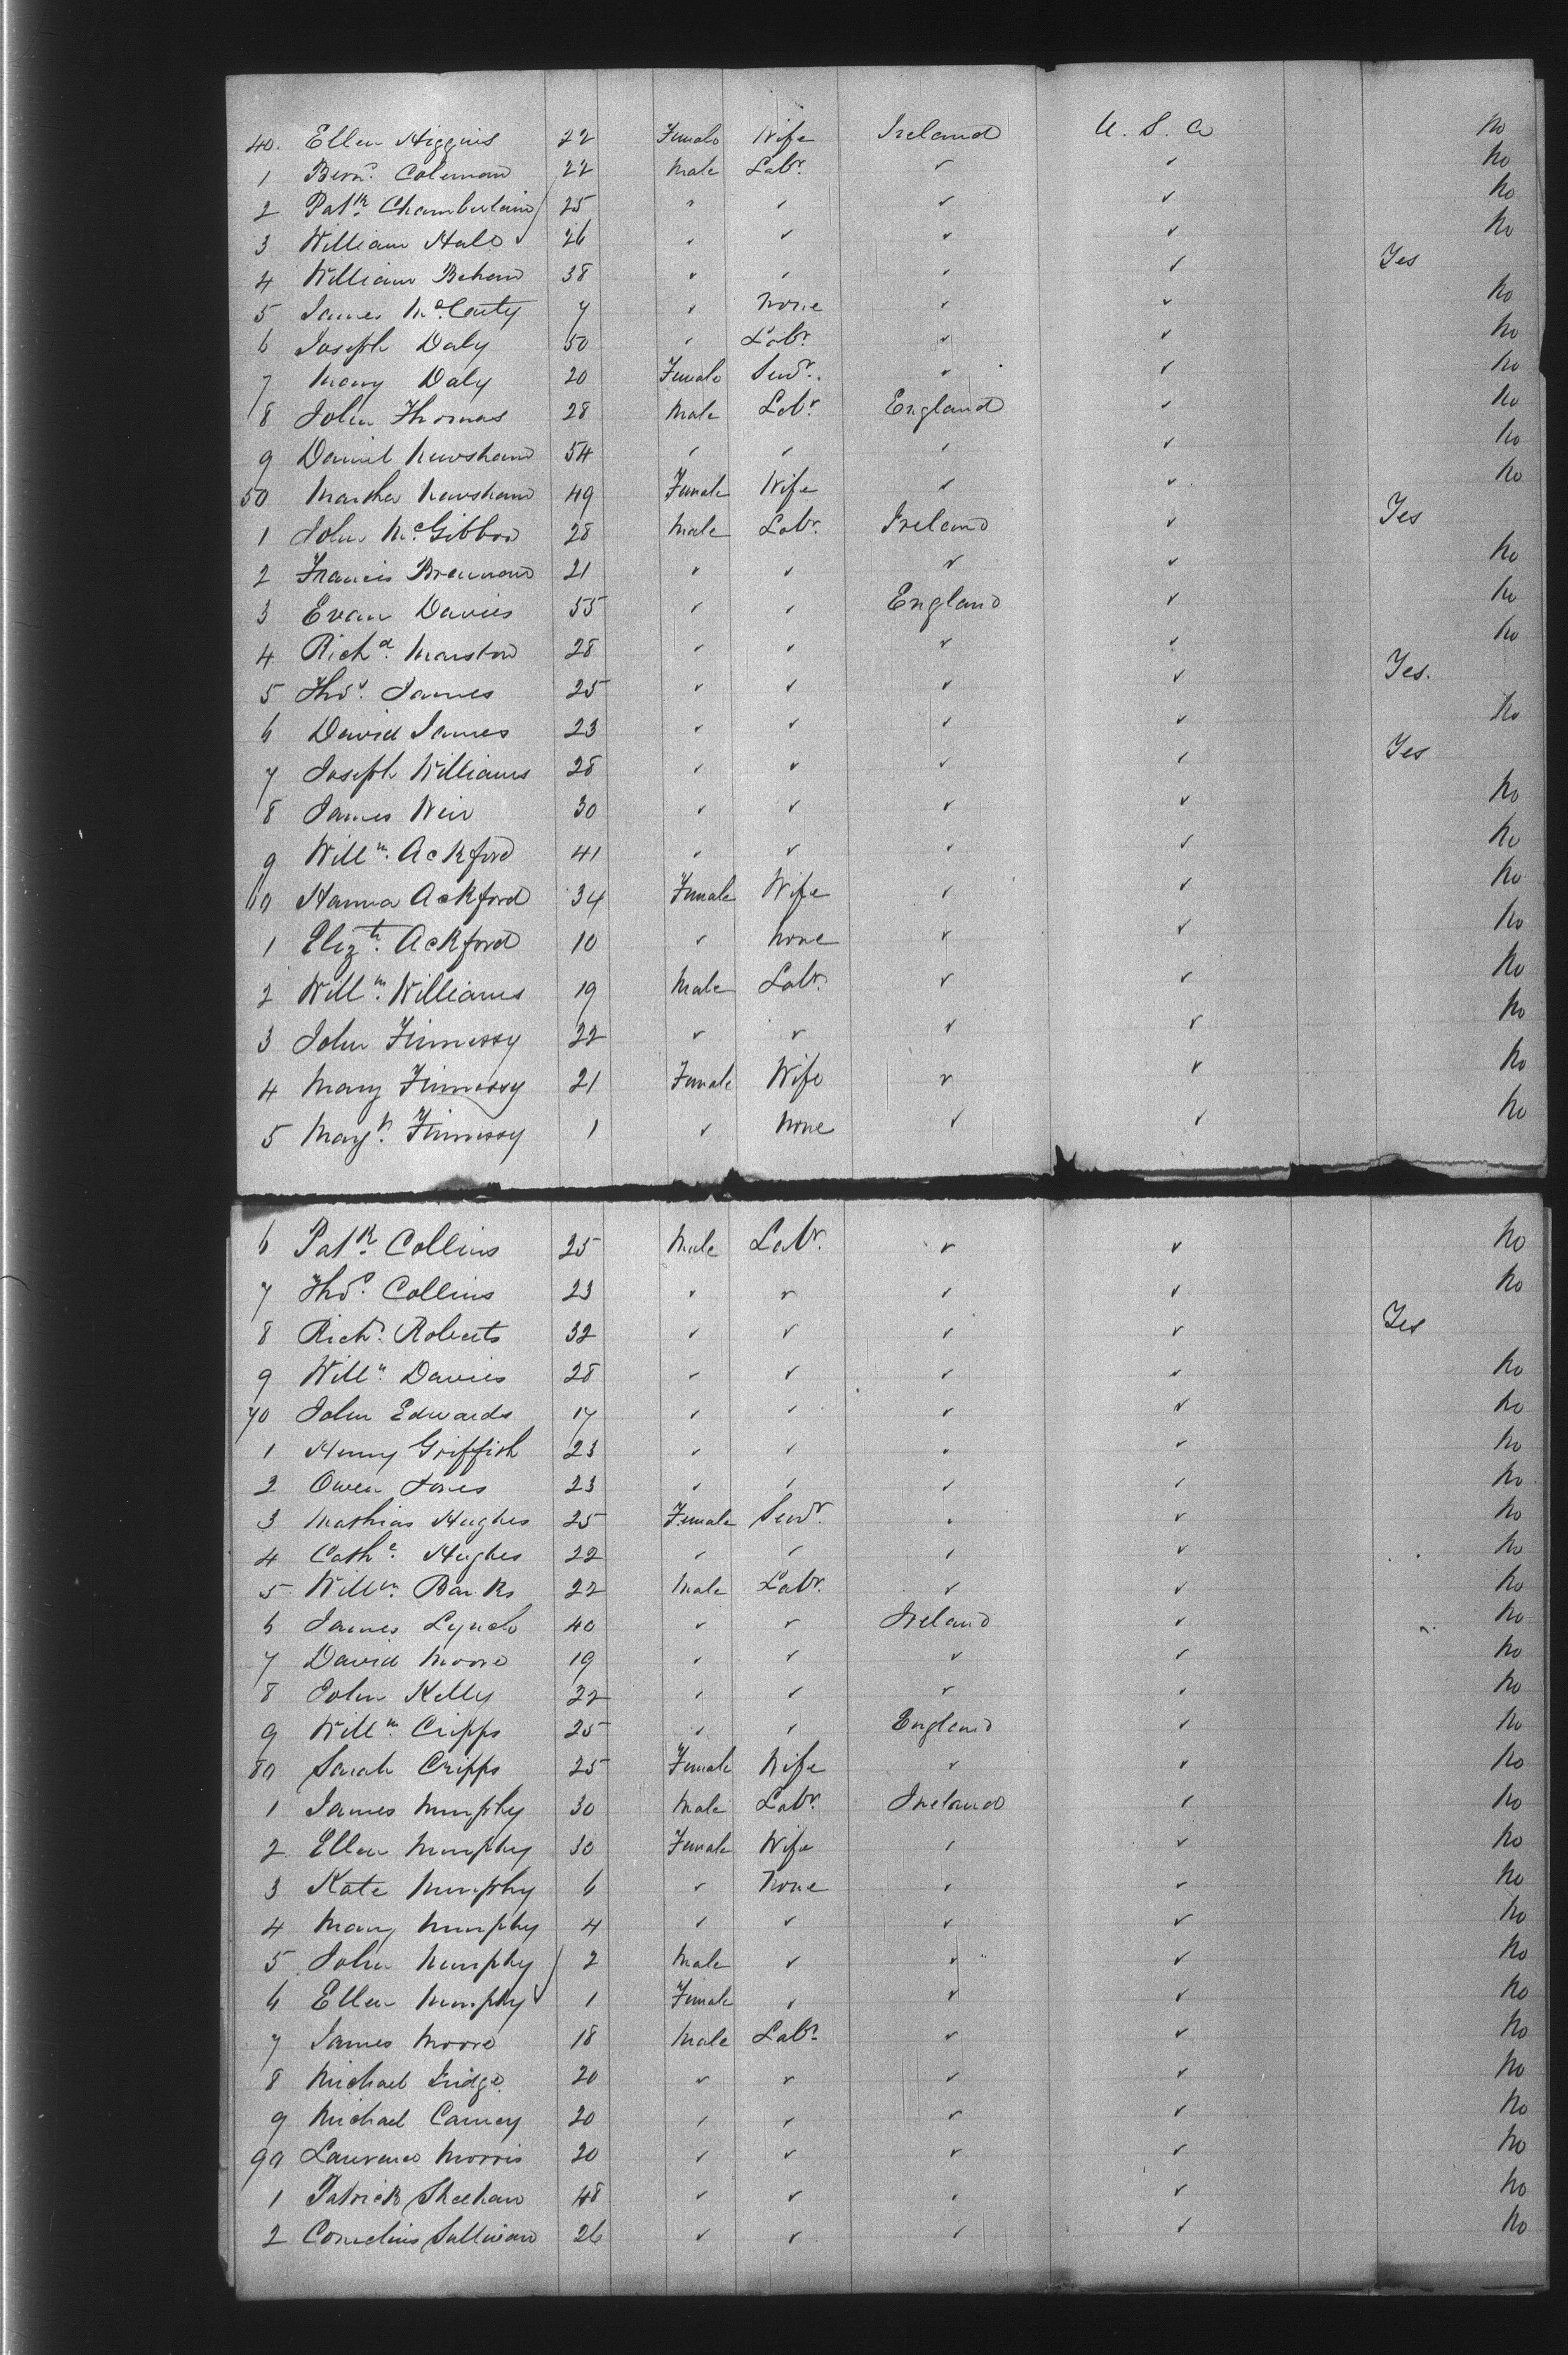 40. Ellen Higgins 22 Female Wife Ireland U. S. A No
1 Bernd. Coleman 22 Male Labr. ✓ ✓ No
2 Patk. Chamberlain 25 ✓ ✓ ✓ ✓ No
3 William Hale 26 ✓ ✓ ✓ ✓ No
4 William Behan 38 ✓ ✓ ✓ ✓ Yes
5 James McCarty 7 ✓ None ✓ ✓ No
6 Joseph Daly 50 ✓ Labr. ✓ ✓ No
7 Mary Daly 20 Female Servr. ✓ ✓ No
8 John Thomas 28 Male Labr. England ✓ No
9 Daniel Newsham 54 ✓ ✓ ✓ ✓ No
50 Martha Newsham 49 Female Wife ✓ ✓ No
1 John McGibbon 28 Male Labr. Ireland ✓ Yes
2 Francis Brennan 21 ✓ ✓ ✓ ✓ No
3 Evan Davies 55 ✓ ✓ England ✓ No
4 Richd. Marston 28 ✓ ✓ ✓ ✓ No
5 Thos. James 25 ✓ ✓ ✓ ✓ Yes.
6 David James 23 ✓ ✓ ✓ ✓ No
7 Joseph Williams 28 ✓ ✓ ✓ ✓ Yes
8 James Weir 30 ✓ ✓ ✓ ✓ No
9 Willm. Ackford 41 ✓ ✓ ✓ ✓ No
60 Hanna Ackford 34 Female Wife ✓ ✓ No
1 Elizth. Ackford 10 ✓ None ✓ ✓ No
2 Willm. Williams 19 Male Labr. ✓ ✓ No
3 John Finnessy 22 ✓ ✓ ✓ ✓ No
4 Mary Finnessy 21 Female Wife ✓ ✓ No
5 Margt. Finnessy 1 ✓ None ✓ ✓ No
6 Patk. Collins 25 Male Labr. ✓ ✓ No
7 Thos. Collins 23 ✓ ✓ ✓ ✓ No
8 Richd. Roberts 32 ✓ ✓ ✓ ✓ Yes
9 Willm. Davies 28 ✓ ✓ ✓ ✓ No
70 John Edwards 17 ✓ ✓ ✓ ✓ No
1 Henry Griffith 23 ✓ ✓ ✓ ✓ No
2 Owen Jones 23 ✓ ✓ ✓ ✓ No
3 Mathias Hughes 25 Female Servr. ✓ ✓ No
4 Cathe. Hughes 22 ✓ ✓ ✓ ✓ No
5 Willm. Banks 22 Male Labr. ✓ ✓ No
6 James Lynch 40 ✓ ✓ Ireland ✓ No
7 David Moore 19 ✓ ✓ ✓ ✓ No
8 John Kelly 22 ✓ ✓ ✓ ✓ No
9 Willm. Cripps 25 ✓ ✓ England ✓ No
80 Sarah Cripps 25 Female Wife ✓ ✓ No
1 James Murphy 30 Male Labr. Ireland ✓ No
2 Ellen Murphy 30 Female Wife ✓ ✓ No
3 Kate Murphy 6 ✓ None ✓ ✓ No
4 Mary Murphy 4 ✓ ✓ ✓ ✓ No
5 John Murphy 2 Male ✓ ✓ ✓ No
6 Ellen Murphy 1 Female ✓ ✓ ✓ No
7 James Moore 18 Male Labr. ✓ ✓ No
8 Michael 20 ✓ ✓ ✓ ✓ No
9 Michael Carney 20 ✓ ✓ ✓ ✓ No
90 Laurence Morris 20 ✓ ✓ ✓ ✓ No
1 Patrick Sheehan 48 ✓ ✓ ✓ ✓ No
2 Cornelius Sullivan 26 ✓ ✓ ✓ ✓ No